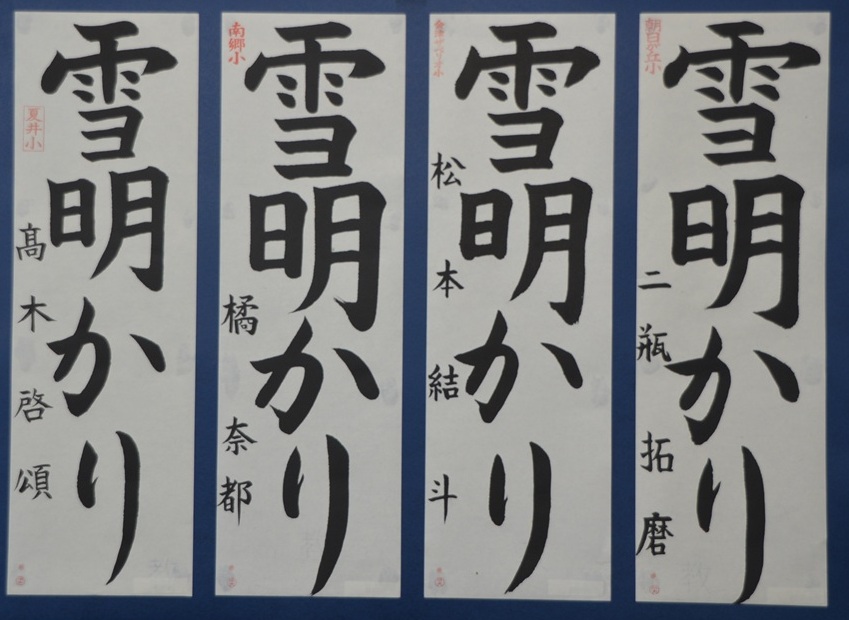 朝日が丘小
雪明かり
二瓶拓磨
雪明かり
松本結斗
南郷小
雪明かり
橘奈都
夏井小
雪明かり
髙木啓頌